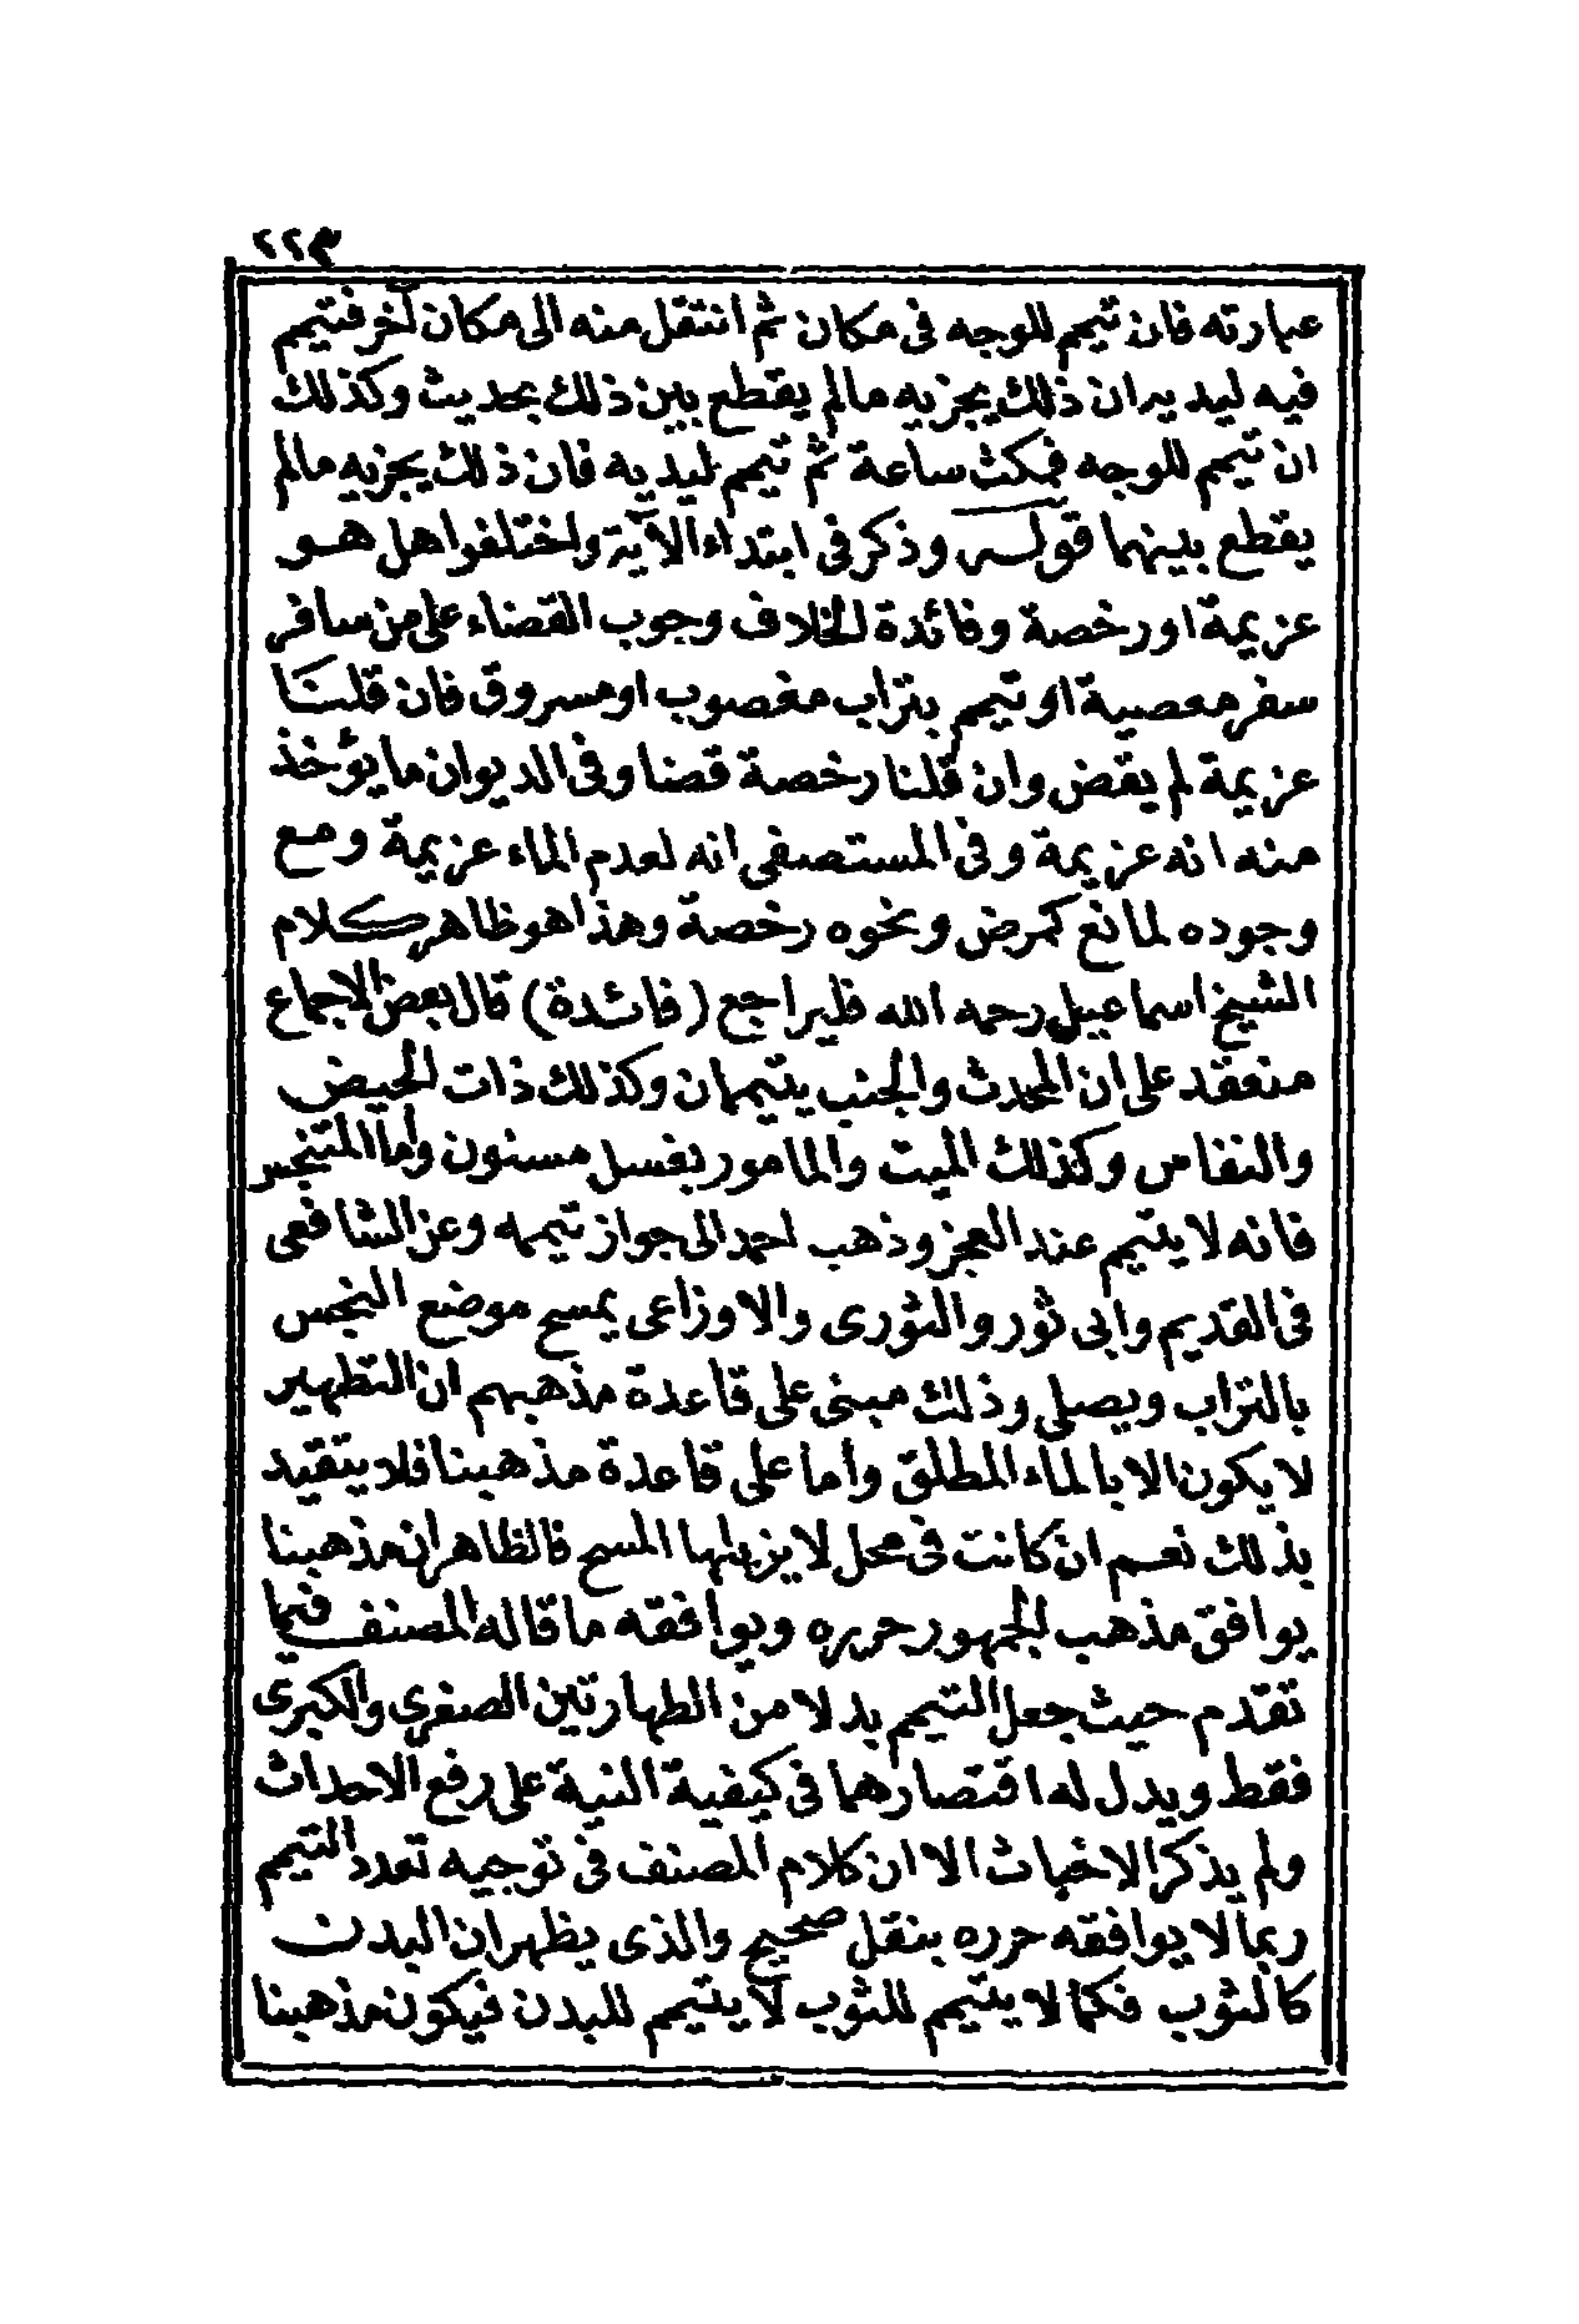 ٢٢٣
عبارته فان تيمم للوجه فى مكان ثم انتقل منه الى مكان آخر فتيمم
فيه ليديه ان ذلك يجزيه مالم يقطع بين ذلك بحديث وكذلك
ان تيمم للوجه فمكث ساعة ثم تيمم ليديه فان ذلك يجزيه مالم
يقطع بينهما قوله وذكر فى ابتداء الآية واختلفوا هل هو
عزيمة او رخصة وفائدة الخلاف وجوب القضاء على من سافر
سفر معصية او تيمم بتراب مغصوب او مسروق فان قلنا
عزيمة لم يقض وان قلنا رخصة قضا وفى الديوان ما يؤخذ
منه انه عزيمة وفى المستصفى انه لعدم الماء عزيمة ومع
وجوده لمانع كمرض ونحوه رخصة وهذا هو ظاهر كلام
الشيخ اسماعيل رحمه الله فليراجع (فائدة) قال بعض الاجماع
منعقد على ان المحدث والجنب يتيممان وكذلك ذات الحيض
والنفاس وكذلك الميت والمامور بغسل مسنون وأما المتنجس
فانه لا يتيمم عند العجز وذهب احمد الى جواز تيممه وعن الشافعى
فى القديم وابى ثور والثورى والاوزاعى يمسح موضع النجس
بالتراب ويصلى وذلك مبنى على قاعدة مذهبهم ان التطهير
لا يكون الا بالماء المطلق وأما على قاعدة مذهبنا فلا يتقيد
بذلك نعم ان كانت فى محل لا يزيلها المسح فالظاهر ان مذهبنا
يوافق مذهب الجمهور حرره ويوافقه ما قاله المصنف فيما
تقدم حيث جعل التيمم بدلا من الطهارتين الصغرى والكبرى
فقط ويدل له اقتصارهما فى كيفية النية على رفع الاحداث
ولم يذكر الاخباث الا ان كلام المصنف فى توجيه تعدد التيمم
ربما لا يوافقه حرره بنقل صحيح والذى يظهر ان البدن
كالثوب فكما لا يتيمم للثوب لا يتيمم للبدن فيكون مذهبنا